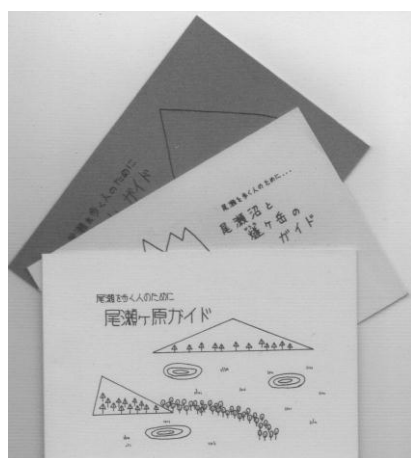 尾瀬を歩く人のために
ガイド
尾瀬を歩く人のために....
尾瀬沼と
燧ヶ岳の
ガイド
尾瀬を歩く人のために
尾瀬ヶ原ガイド